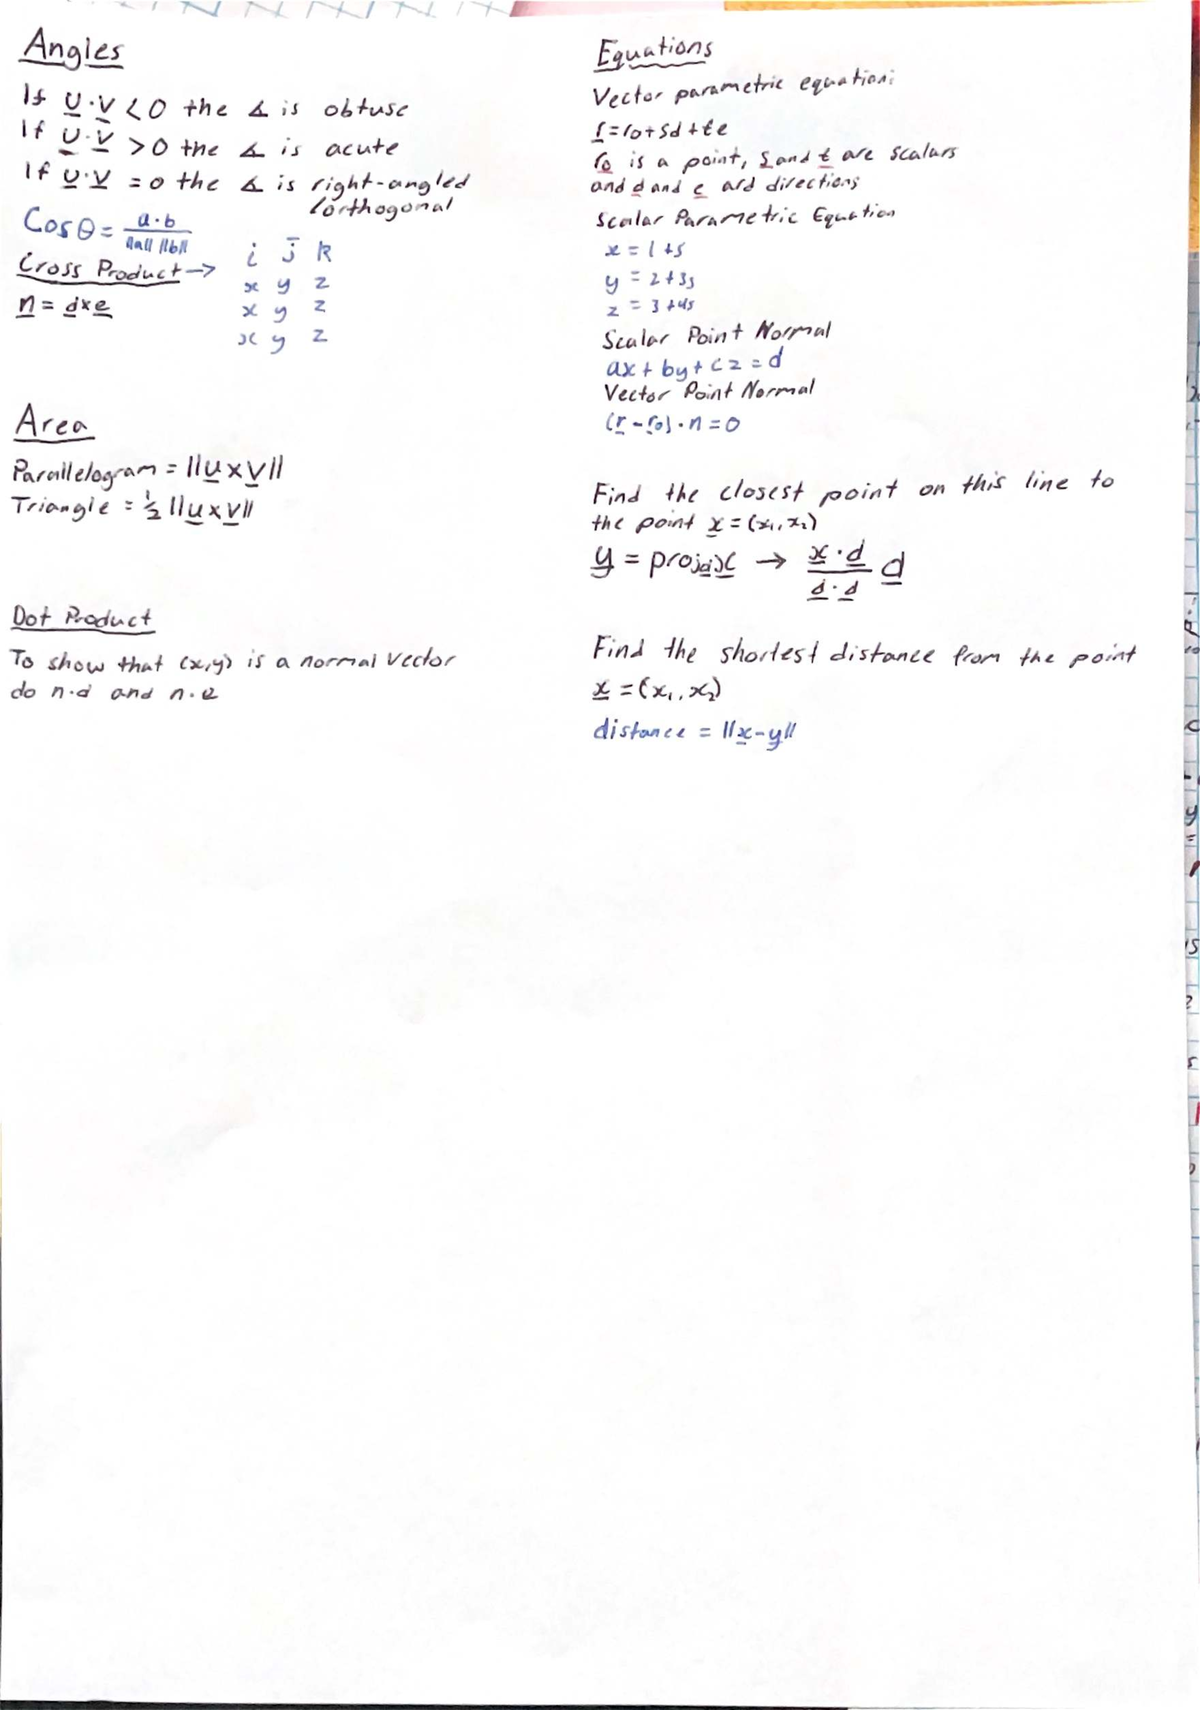 Angles
If u·v < 0 the ∡ is obtuse
If u·v > 0 the ∡ is acute
If u·v = 0 the ∡ is right-angled
/orthogonal
Cos θ = a·b / ||a|| ||b||
Cross Product →
i j k
x y z
x y z
x y z
n = d×e
Area
Parallelogram = ||u×v||
Triangle = ½ ||u×v||
Dot Product
To show that (x,y) is a normal vector
do n·d and n·e
Equations
Vector parametric equation:
r = r0 + sd + te
r0 is a point, s and t are scalars
and d and e ard directions
Scalar Parametric Equation
x = 1 + s
y = 2 + 3s
z = 3 + 4s
Scalar Point Normal
ax + by + cz = d
Vector Point Normal
(r - r0) · n = 0
Find the closest point on this line to
the point x = (x1, x2)
y = proj_d x → x·d / d·d d
Find the shortest distance from the point
x = (x1, x2)
distance = ||x-y||